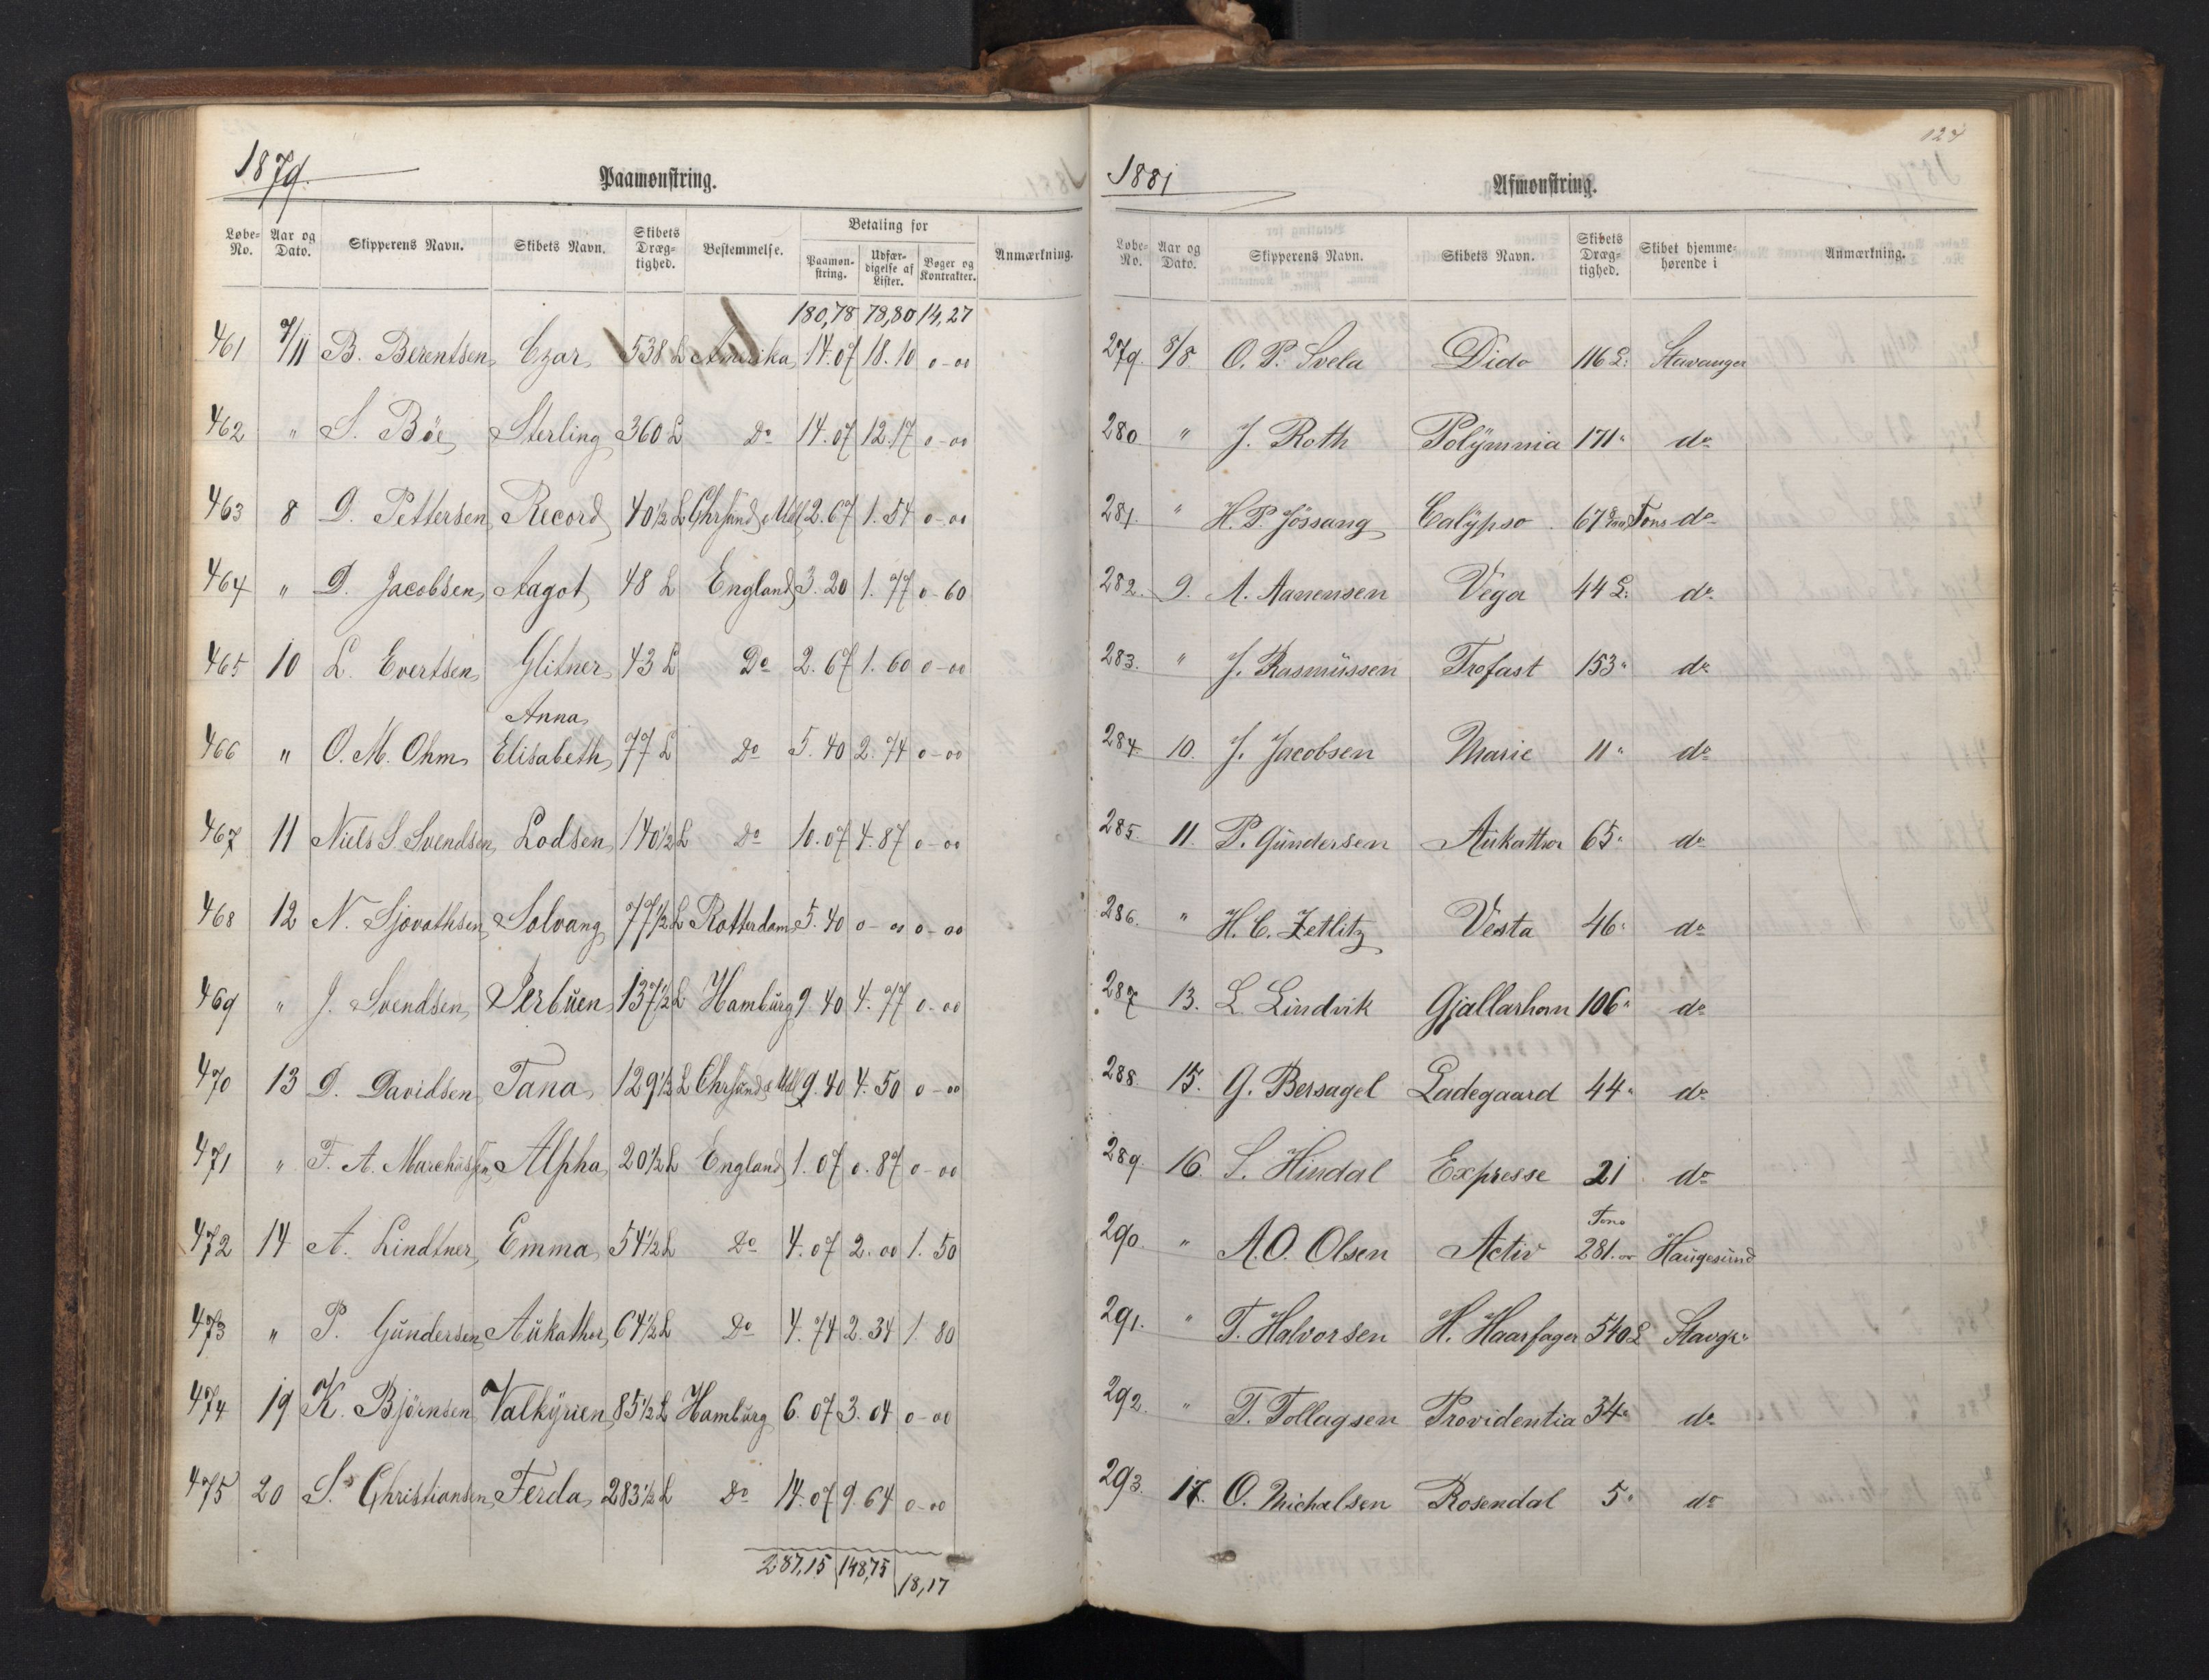 1879.
Paamønstring.
Løbe-No. Aar og Dato. Skipperens Navn. Skibets Navn. Skibets Dræg-tighed. Bestemmelse. Betaling for Paamøn-string. Udfær-digelse af Lister. Bøger og Kontrakter. Anmærkning.
180,78 78,80 14,27
461 7/11 B. Berentsen Czar 538 L Amerika 14.07 18.10 0-00
462 " S. Böe Sterling 360 L Do 14.07 12.17 0-00
463 8 D. Pettersen Record 40½ L Chrsund 2.67 1.54 0-00
464 " D. Jacobsen Aagot 48 L England 3.20 1.77 0-60
465 10 L. Evertsen Glitner 43 L Do 2.67 1.60 0-00
466 " O. M. Ohm Anna Elisabeth 77 L Do 5.40 2.74 0-00
467 11 Niels S. Svendsen Lodsen 140½ L Do 10.07 4.87 0-00
468 12 N. Sjovathsen Solvang 77½ L Rotterdam 5.40 0-00 0-00
469 " J. Svendsen Jerbuen 137½ L Hamburg 9.40 4.77 0-00
470 13 D. Davidsen Tana 129½ L Chrsund 9.40 4.50 0-00
471 " F. A. Alpha 20½ L England 1.07 0.87 0-00
472 14 A. Lindtner Emma 54½ L Do 4.07 2.00 1.50
473 " P. Gundersen Aukathor 64½ L Do 4.74 2.34 1.80
474 19 K. Björnsen Valkyrien 85½ L Hamburg 6.07 3.04 0-00
475 20 S. Christiansen Ferda 283½ L Do 14.07 9.64 0-00
287,15 148,75 18,17
124
1881
Afmønstring.
Løbe-No. Aar og Dato. Skipperens Navn. Skibets Navn. Skibets Dræg-tighed. Skibet hjemme-hørende i Anmærkning.
279. 8/8. O. P. Svela Dido 116 L: Stavanger
280 " J. Roth Polymnia 171 " do
281. " H. P. Jössang Calypso 67 Tons do
282. 9. A. Aanensen Vega 44 L: do
283. " J. Rasmussen Trofast 153 " do
284. 10. J. Jacobsen Marie 11 " do
285. 11. P. Gundersen Aukathor 65 " do
286. " H. C. Zetlitz Vesta 46 " do
287. 13. L. Lindvik Gjallarhorn 106 " do
288. 15. G. Bersagel Ladegaard 44 " do
289. 16. S. Hindal Expresse 21 do
290. " A. O. Olsen Activ Tons 281. Haugesund
291. " T. Halvorsen H. Haarfager 540 L Stavgr
292. " T. Tollagsen Providentia 34 " do
293. 17. O. Michalsen Rosendal 5 " do